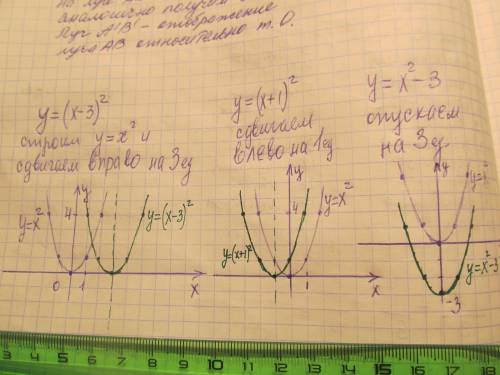 аналогично получим
Луч A'B' - отображение
луча AB относительно т. O.
y=(x-3)²
строим y=x² и
сдвигаем вправо на 3ед
y=(x+1)²
сдвигаем
влево на 1ед
y=x²-3
опускаем
на 3ед.
y
4
y=x²
y=(x-3)²
0
1
x
y
4
y=x²
y=(x+1)²
1
x
4
y=x²
y=x²-3
-3
3 4 5 6 7 8 9 10 11 12 13 14 15 16 17 18